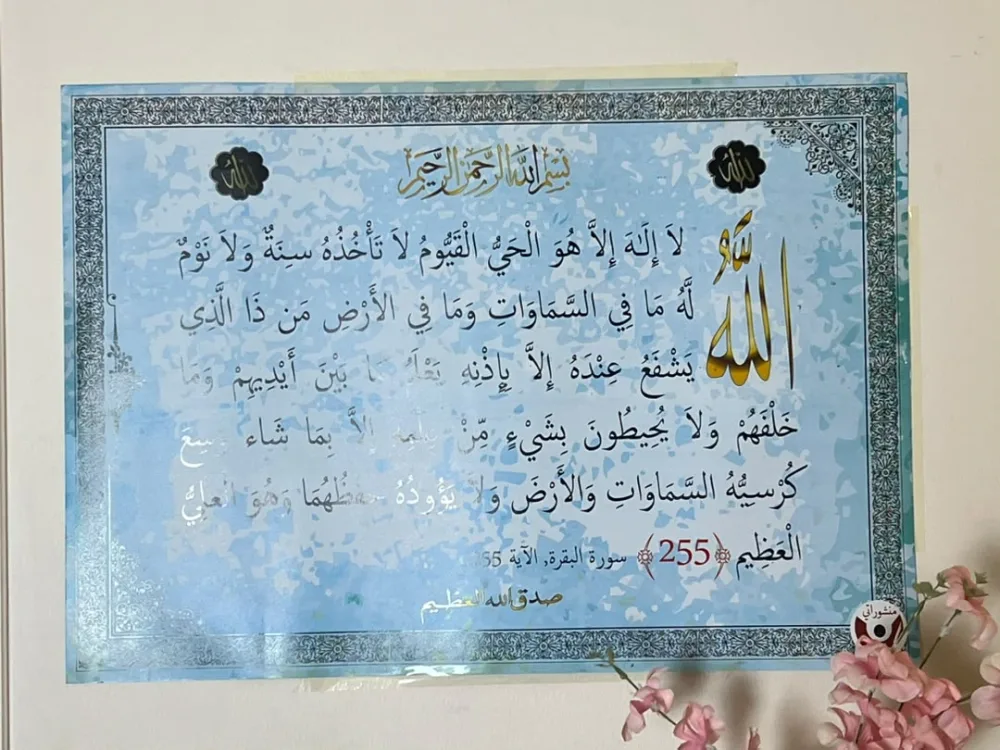 بِسْمِ اللَّهِ الرَّحْمَنِ الرَّحِيمِ
اللَّهُ لاَ إِلَـٰهَ إِلاَّ هُوَ الْحَيُّ الْقَيُّومُ لاَ تَأْخُذُهُ سِنَةٌ وَلاَ نَوْمٌ
لَّهُ مَا فِي السَّمَاوَاتِ وَمَا فِي الأَرْضِ مَن ذَا الَّذِي
يَشْفَعُ عِنْدَهُ إِلاَّ بِإِذْنِهِ يَعْلَمُ مَا بَيْنَ أَيْدِيهِمْ وَمَا
خَلْفَهُمْ وَلاَ يُحِيطُونَ بِشَيْءٍ مِّنْ عِلْمِهِ إِلاَّ بِمَا شَاء وَسِعَ
كُرْسِيُّهُ السَّمَاوَاتِ وَالأَرْضَ وَلاَ يَؤُودُهُ حِفْظُهُمَا وَهُوَ الْعَلِيُّ
الْعَظِيم ﴿255﴾ سورة البقرة, الآية 255
صدق الله العظيم
منشوراتي